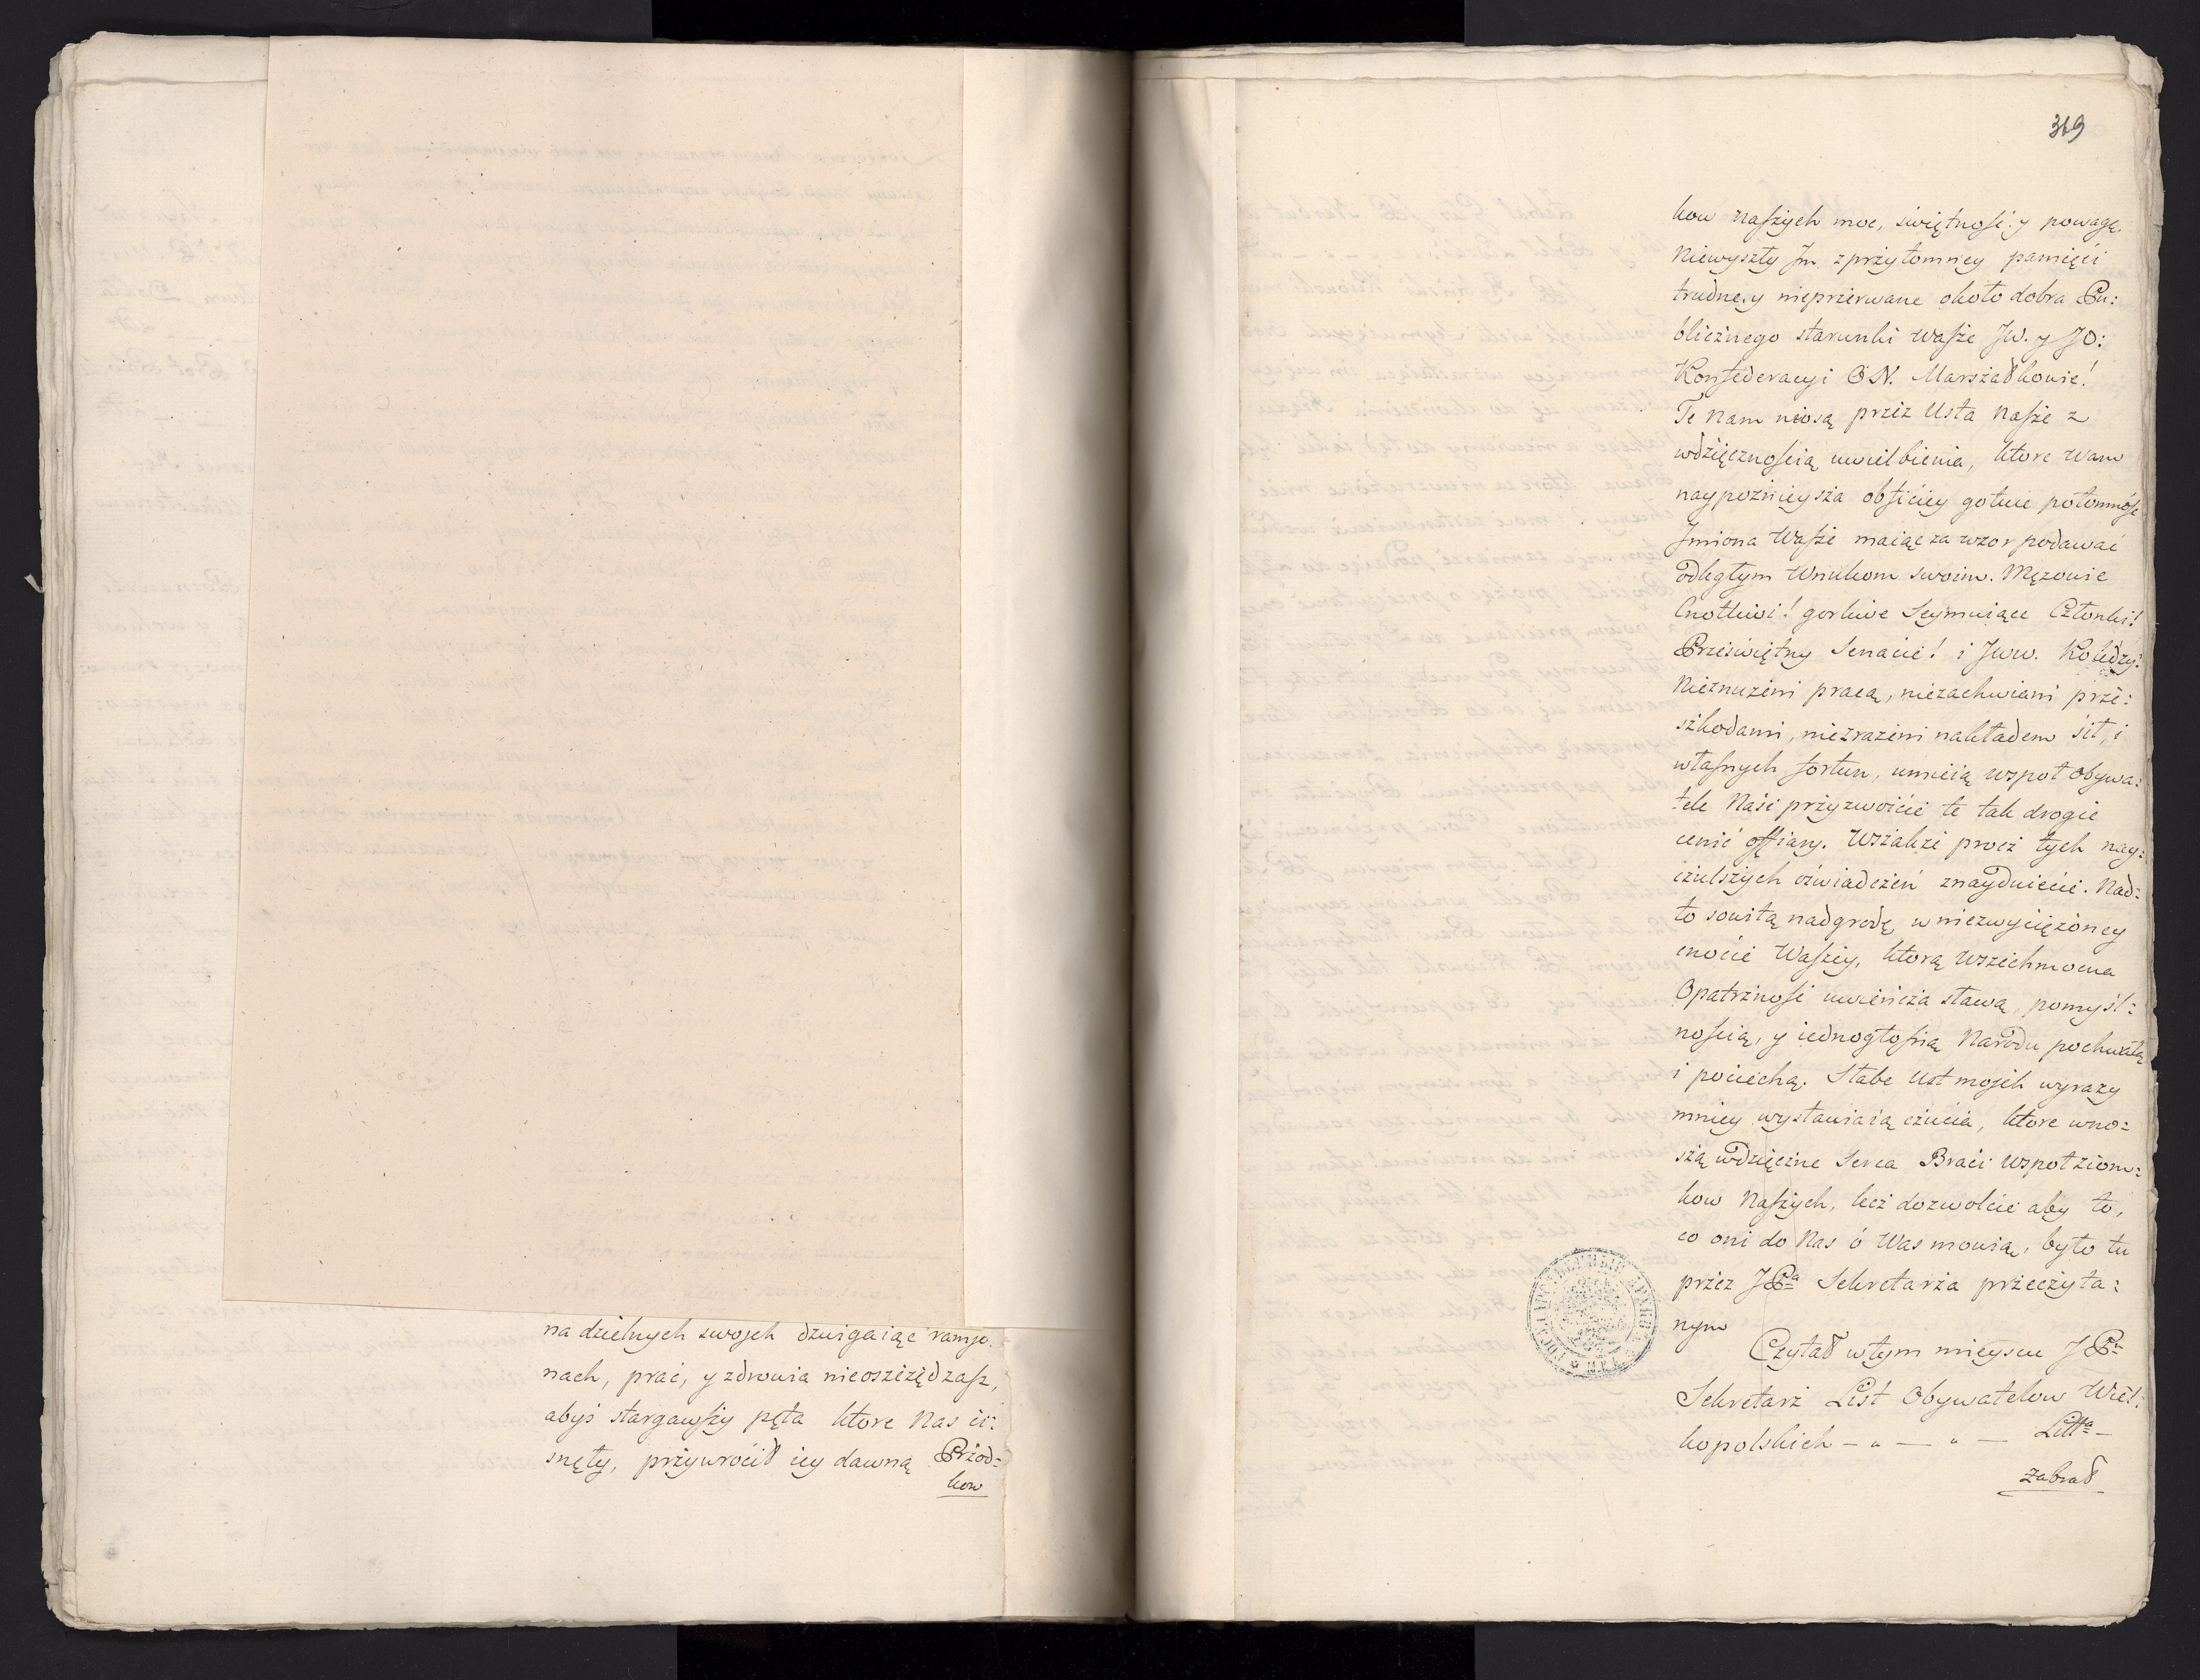 na dzielnych swojch dzwigaiąc ramio
nach, prac, y zdrowia nieoszczędzasz,
abyś stargawszy pęta ktore Nas ci:
snęły, przywrócił iey dawną Przod:
kow
369
kow naszych moc, świętność y powagę.
Niewyszły Jm z przytomney pamięci
trudne, y nieprzerwane około dobra Pu:
blicznego starunki wasze JW. y JO:
Konfederacyi O N. Marszałkowie!
Te Nam niosą przez Usta nasze z
wdzięcznością uwielbienia, ktore Wam
naypoznieysza obficiey gotuie potomność
Jmiona Wasze maiąc za wzor podawać
odległym Wnukom swoim. Mężowie
Cnotliwi! gorliwe Seymuiące Członki!
Prześwietny Senacie! i JWW. Koledzy!
Nieznużeni pracą, niezachwiani prze:
szkodami, niezrażeni nakładem sił, i
własnych fortun, umieią wspoł Obywa:
tele Nasi przyzwoicie te tak drogie
cenić offiary. Wszakże procz tych nay:
czulszych oświadczeń znayduiecie. Nad:
to sowitą nadgrodę w niezwyciężoney
cnocie Waszey, ktorą Wszechmocna
Opatrzność uwieńcza sławą, pomyśl:
nością, y iednogłośną Narodu pochwałą
i pociechą. Słabe Ust mojch wyrazy
mniey wystawiaią czucia, ktore wno:
szą wdzięczne Serca Braci Wspołziom:
kow Naszych, lecz dozwolcie aby to,
co oni do Nas o Was mowią, było tu
przez JPa Sekretarza przeczyta:
nym
Czytał w tym mieyscu JPn
Sekretarz List Obywatelow Wiel:
kopolskich — " — " — Litta —
zabrał